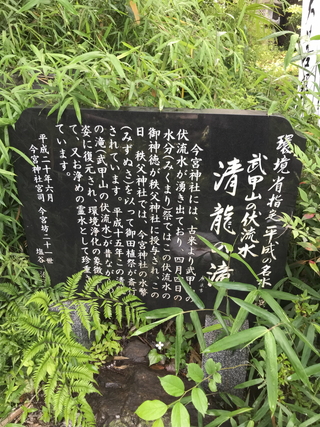 環境省指定 平成の名水
武甲山伏流水
清龍の滝
今宮神社には、古来より武甲山の
伏流水が湧き出ており、四月四日の
水分（みくまり）祭ではこの伏流水の
御神徳が秩父神社に授与され、この
日、秩父神社では、今宮神社の水幣
（みずぬさ）を以って御田植祭が斎行
されています。平成十五年この清龍
の滝（武甲山の伏流水）が昔ながらの
姿に復元され、環境浄化の象徴とし
て、又お浄めの霊水として珍重され
ています。
平成二十年六月
今宮神社宮司 今宮坊二十一世
塩谷